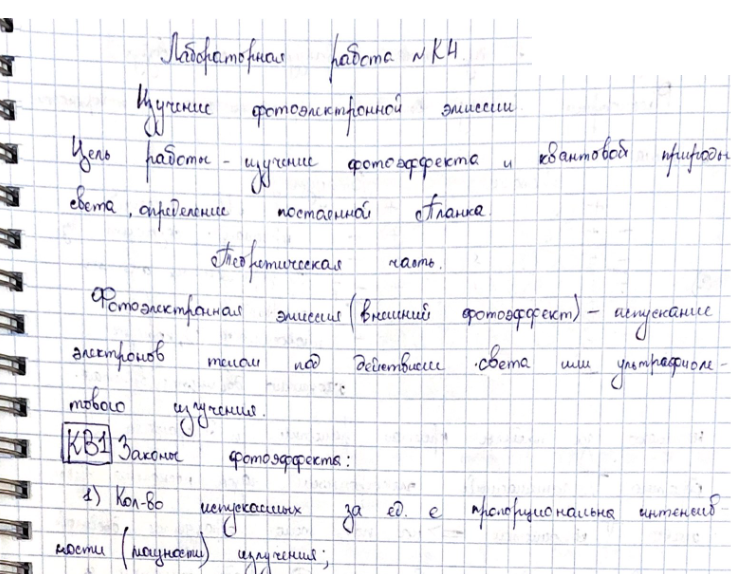 Лабораторная работа №К4
Изучение фотоэлектронной эмиссии
Цель работы - изучение фотоэффекта и квантовой природы
света, определение постоянной Планка.
Теоретическая часть.
Фотоэлектронная эмиссия (внешний фотоэффект) - испускание
электронов телом под действием света или ультрафиоле-
тового излучения.
КВ1 Законы фотоэффекта:
1) Кол-во испускаемых за ед. е пропорциональна интенсив-
ности (мощности) излучения;